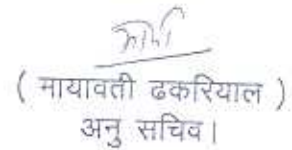 ( मायावती ढकरियाल )
अनु सचिव।